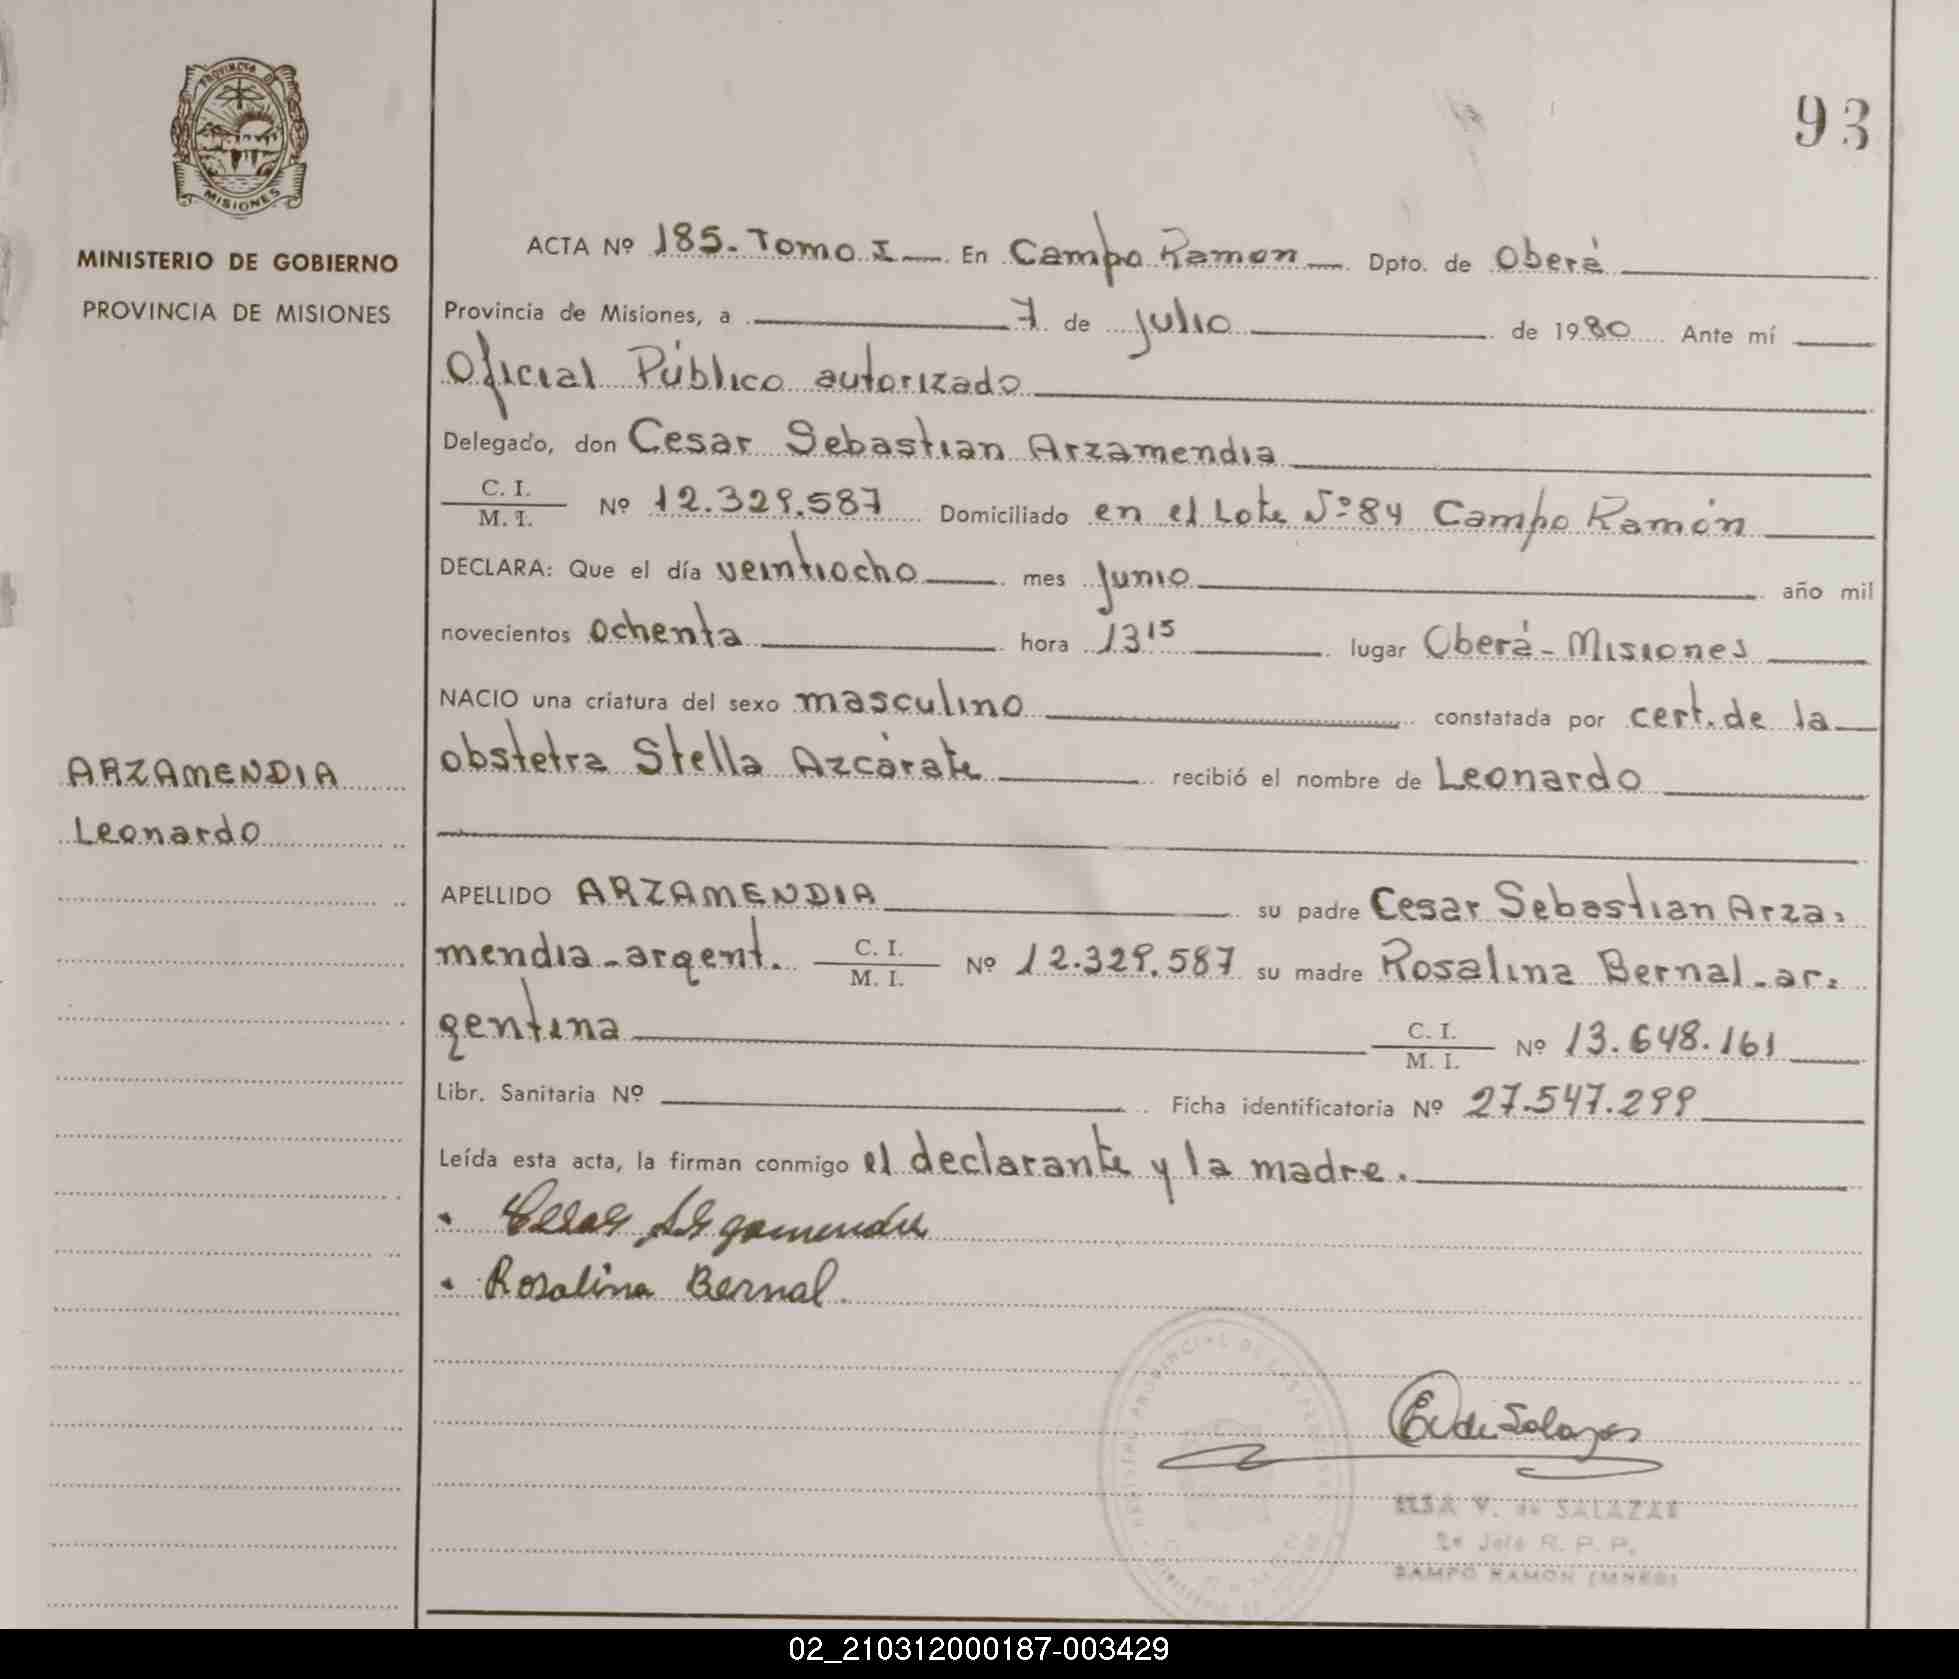 PROVINCIA DE
MISIONES
MINISTERIO DE GOBIERNO
PROVINCIA DE MISIONES
93
ACTA Nº 185. Tomo I En Campo Ramon Dpto. de Oberá
Provincia de Misiones, a 7 de julio de 1980 Ante mí
Oficial Público autorizado
Delegado, don Cesar Sebastian Arzamendia
C. I.
M. I. Nº 12.329.587 Domiciliado en el Lote Nº 84 Campo Ramón
DECLARA: Que el día veintiocho mes junio año mil
novecientos ochenta hora 13 15 lugar Oberá - Misiones
NACIO una criatura del sexo masculino constatada por cert. de la
obstetra Stella Azcárate recibió el nombre de Leonardo
ARZAMENDIA
Leonardo
APELLIDO ARZAMENDIA su padre Cesar Sebastian Arza=
mendia - argent. C. I.
M. I. Nº 12.329.587 su madre Rosalina Bernal - ar=
gentina C. I.
M. I. Nº 13.648.161
Libr. Sanitaria Nº Ficha identificatoria Nº 27.547.299
Leída esta acta, la firman conmigo el declarante y la madre.
Cesar Arzamendia
Rosalina Bernal.
E V de Salazar
ELSA V. de SALAZAR
2ª Jefe R. P. P.
CAMPO RAMON (MNES)
02_210312000187-003429